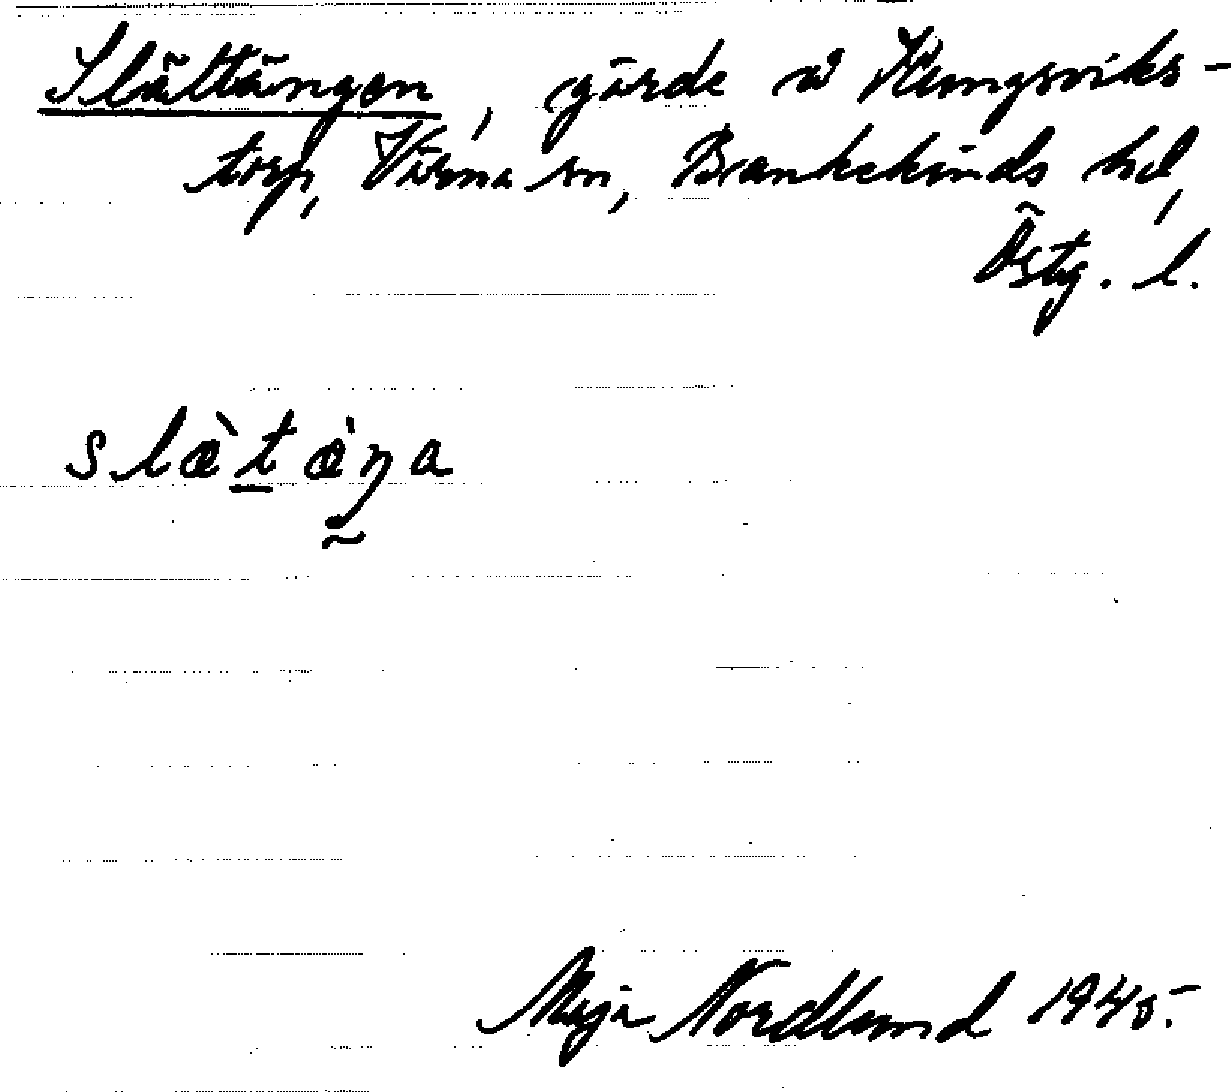 Slättängen, gärde i Kungsviks-
torp, Värna sn, Bankekinds hd,
Östg. l.
slæ̀tæ̀ŋa
Maja Nordlund 1940.